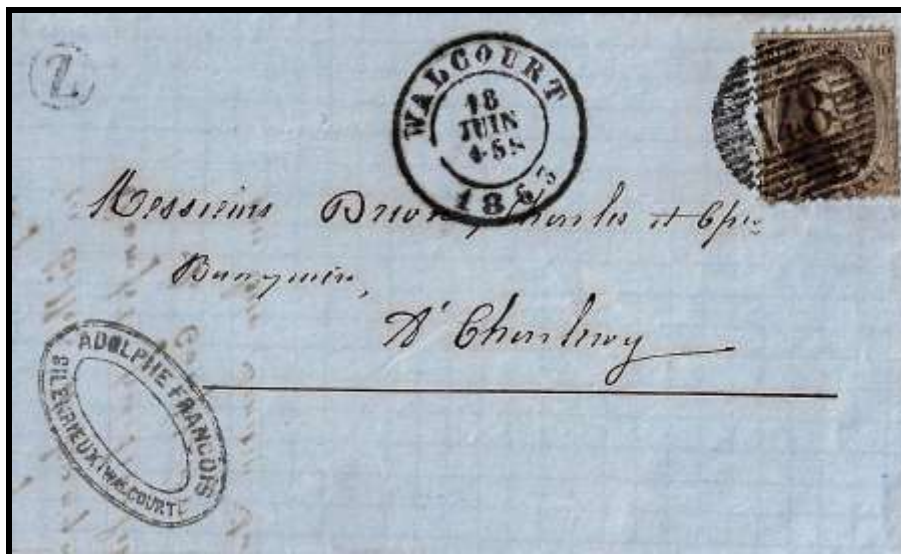 Z
WALCOURT
18
JUIN
4-5S
1863
10
Messieurs Charles et Cpie
Banquiers,
A' Charleroy
ADOLPHE FRANCOIS
SILENRIEUX (WALCOURT)